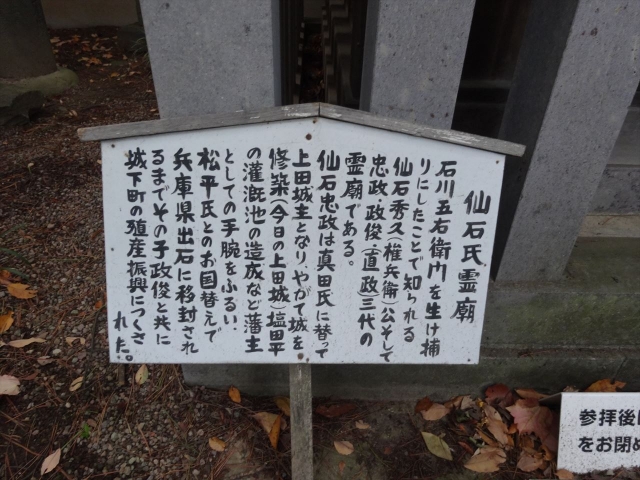 仙石氏霊廟
石川五右衛門を生け捕
りにしたことで知られる
仙石秀久(権兵衛)公そして
忠政・政俊・(直政)三代の
霊廟である。
仙石忠政は真田氏に替って
上田城主となり、やがて城を
修築(今日の上田城)塩田平
の灌漑池の造成など藩主
としての手腕をふるい、
松平氏とのお国替えで
兵庫県出石に移封され
るまでその子政俊と共に
城下町の殖産振興につくさ
れた。
参拝後
をお閉め